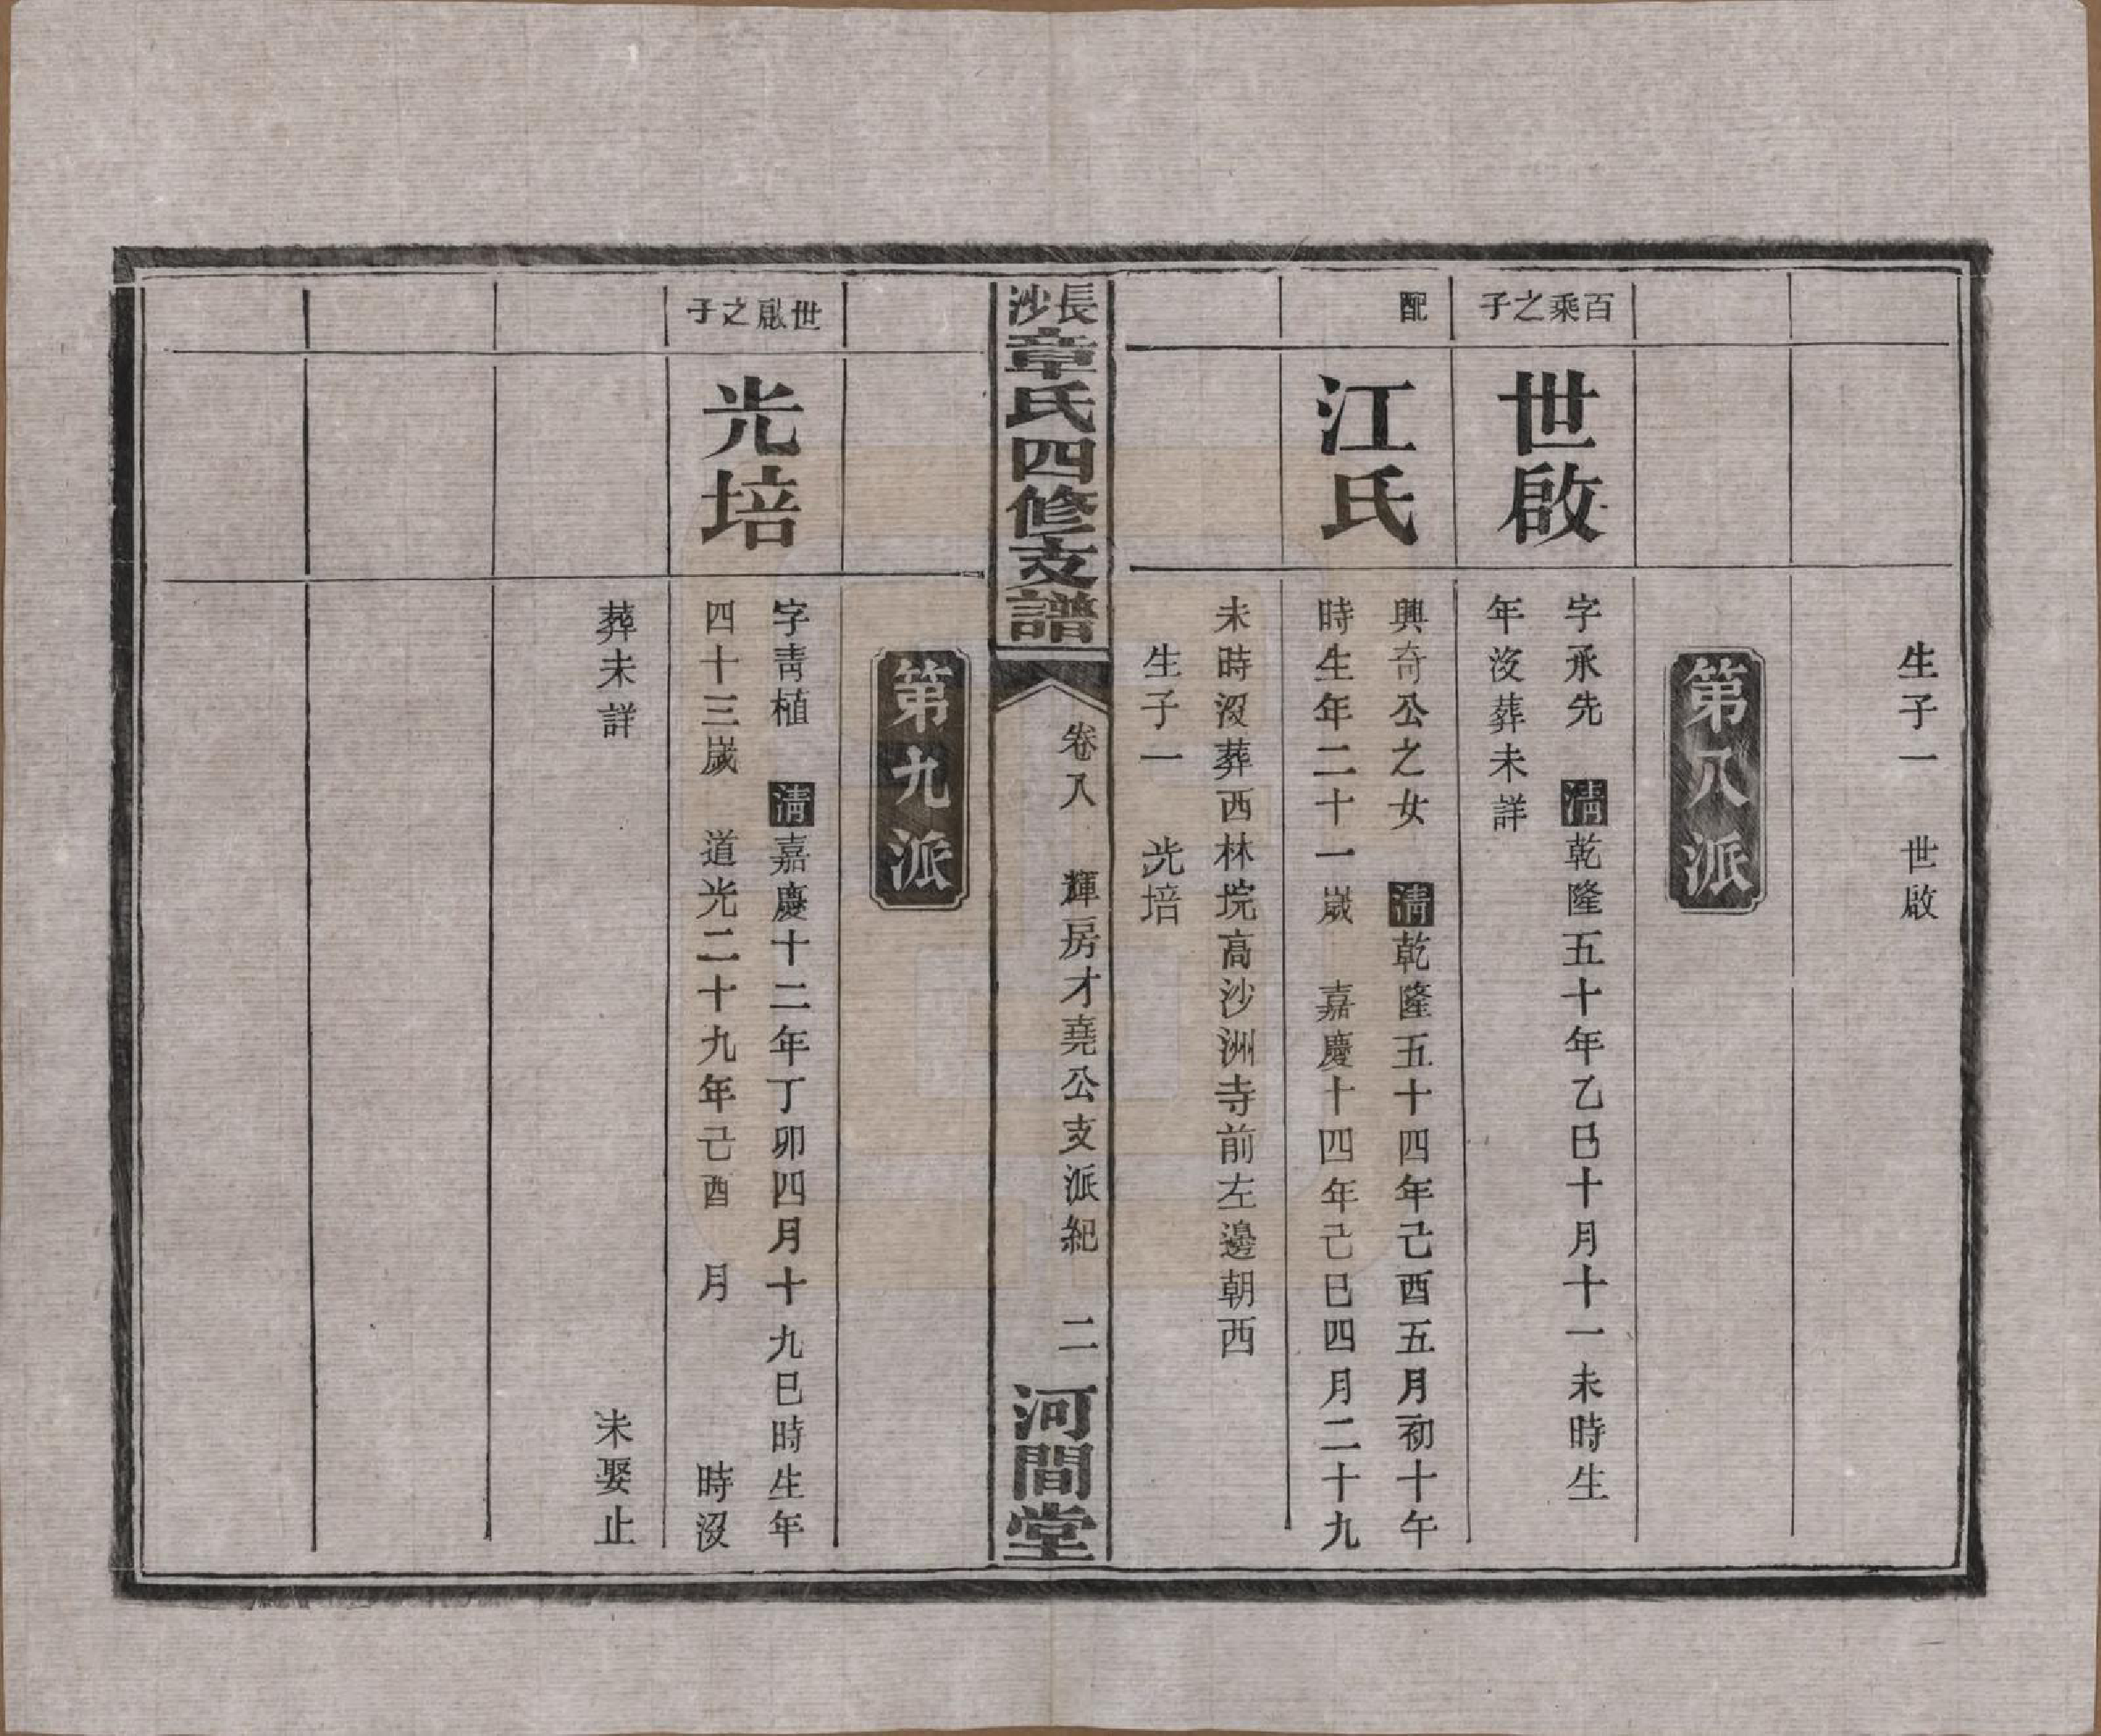 生子一　世啟
第八派
百乘之子
世啟
字承先　清乾隆五十年乙巳十月十一未時生
年沒葬未詳
配
江氏
興奇公之女　清乾隆五十四年己酉五月初十午
時生年二十一歲　嘉慶十四年己巳四月二十九
未時沒葬西林垸高沙洲寺前左邊朝西
生子一　光培
長沙章氏四修支譜
卷八　輝房才堯公支派紀　二
河間堂
第九派
世啟之子
光培
字青植　清嘉慶十二年丁卯四月十九巳時生年
四十三歲　道光二十九年己酉　月　　　時沒
葬未詳　　　未娶止